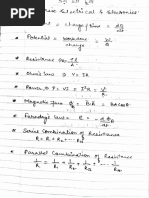 Basic Electrical & Electronics
Current = charge/time = dQ/dt
Potential = workdone/charge = W/Q
Resistance R = ρl/A
Ohm's law ⇒ V = IR
Power ⇒ P = VI = I²R = V²/R
Magnetic flux φ = B·A = BA cosθ
Faraday's law = - dφ/dt
Series Combination of
Resistance
R = R₁ + R₂ ---- Rn
Parallel Combination of Resistance
1/R = 1/R₁ + 1/R₂ + 1/R₃ ---- 1/Rn